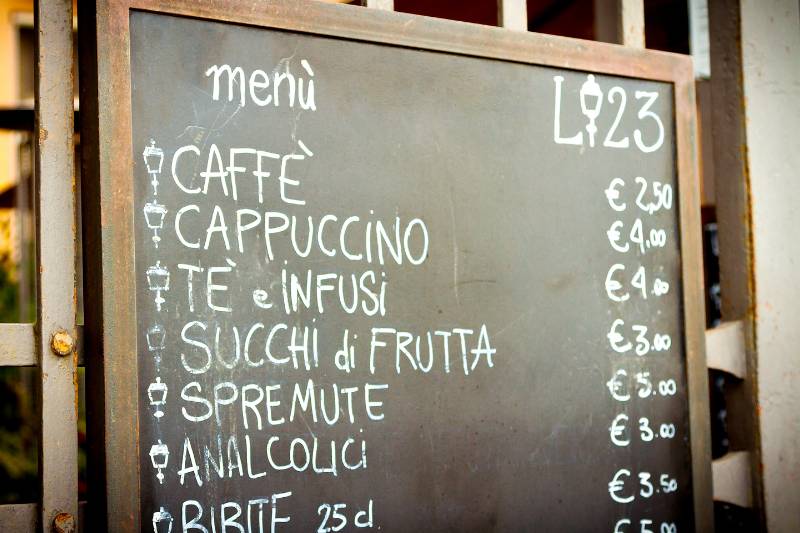 menù L 23
CAFFÈ € 2,50
CAPPUCCINO € 4.00
TÈ e INFUSI € 4.00
SUCCHI di FRUTTA € 3.00
SPREMUTE € 5.00
ANALCOLICI € 3.00
BIBITE 25 cl € 3.50
€ 5.00